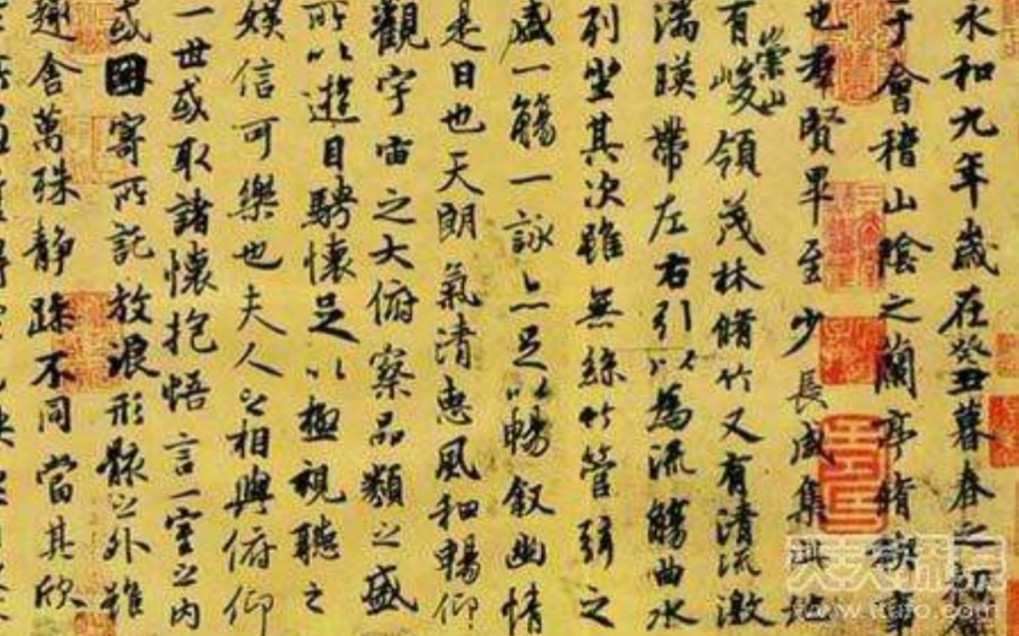 永和九年歲在癸丑暮春之初
于會稽山陰之蘭亭脩禊事
也羣賢畢至少長咸集此地
有崇山峻領茂林脩竹又有清流激
湍暎帶左右引以為流觴曲水
列坐其次雖無絲竹管弦之
盛一觴一詠亦足以暢叙幽情
是日也天朗氣清惠風和暢仰
觀宇宙之大俯察品類之盛
所以遊目騁懷足以極視聽之
娛信可樂也夫人之相與俯仰
一世或取諸懷抱悟言一室之內
或因寄所託放浪形骸之外雖
趣舍萬殊靜躁不同當其欣
www.ttufo.com